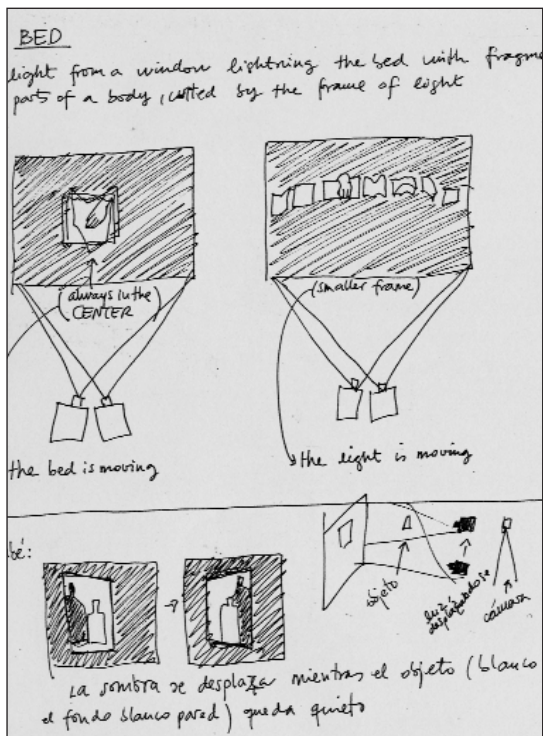 BED
light from a window lightning the bed with fragme
parts of a body, cutted by the frame of light
(always in the
CENTER)
(smaller frame)
the bed is moving
the light is moving
bé:
objeto
luz
desplazándose
cámara
La sombra se desplaza mientras el objeto (blanco
el fondo blanco pared) queda quieto